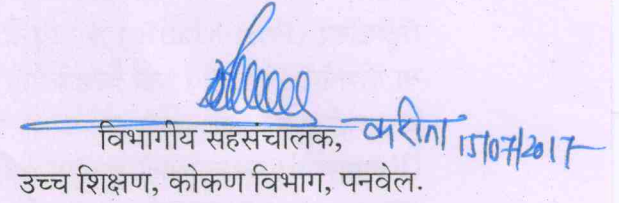 विभागीय सहसंचालक, करीता 15/07/2017
उच्च शिक्षण, कोकण विभाग, पनवेल.